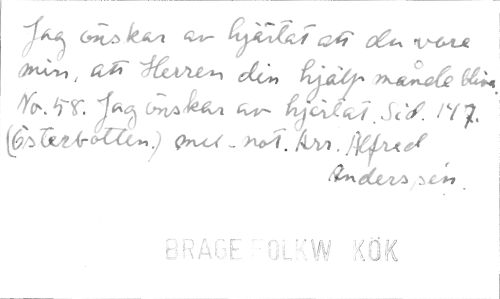 Jag önskar av hjärtat att du vore
min, att Herren din hjälp månde bliva.
No. 58. Jag önskar av hjärtat. Sid. 147.
(Österbotten.) mel. not. Arr. Alfred
Anderssén.
BRAGE FOLKW KÖK